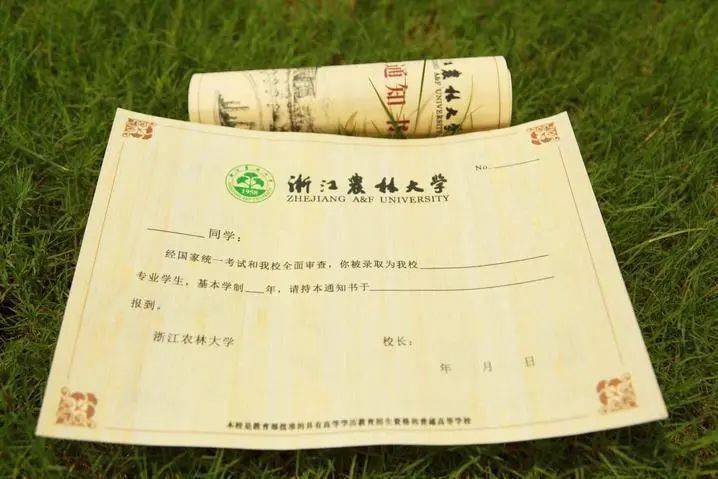 浙江農林大学
A&F UNIVERSITY
通知书
No.
1958
浙江農林大学
ZHEJIANG A&F UNIVERSITY
同学：
经国家统一考试和我校全面审查，你被录取为我校
专业学生，基本学制___年，请持本通知书于
报到。
浙江农林大学
校长：
年 月 日
本校是教育部批准的具有高等学历教育招生资格的普通高等学校